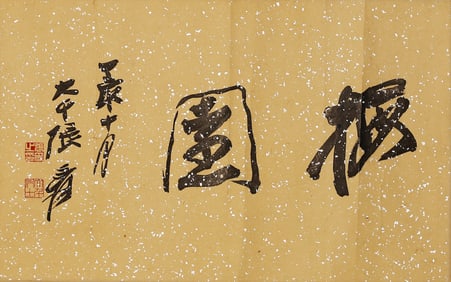 梅園
辰十月
大千張爰